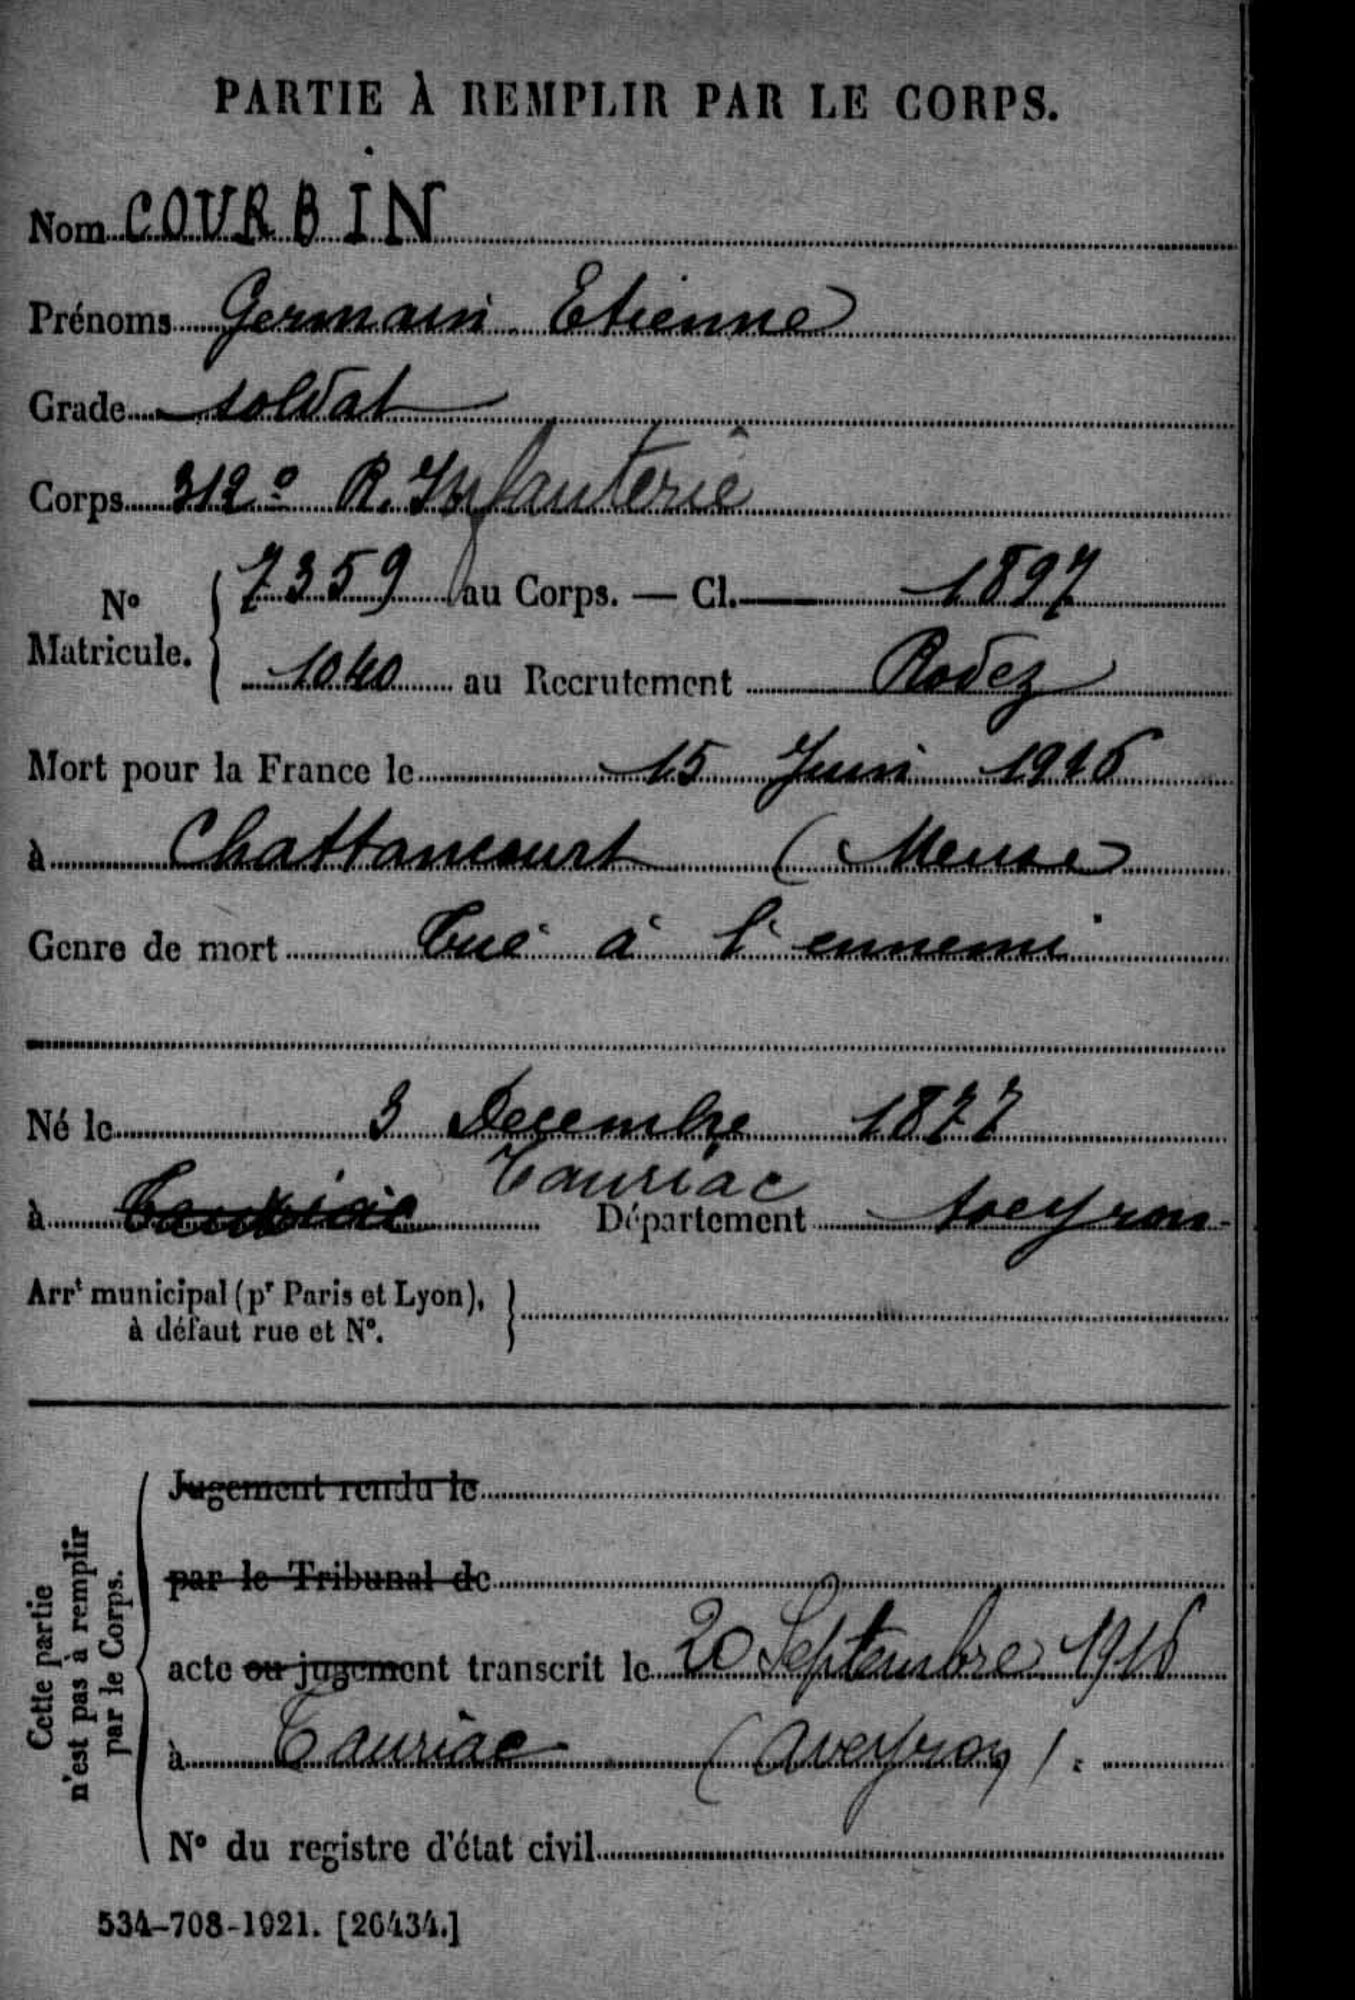 PARTIE À REMPLIR PAR LE CORPS.
Nom COURBIN
Prénoms Germain Etienne
Grade soldat
Corps 312e R. Infanterie
No Matricule. 7359 au Corps. — Cl. 1897
1040 au Recrutement Rodez
Mort pour la France le 15 Juin 1916
à Chattancourt (Meuse
Genre de mort Tué à l'ennemi
Né le 3 Decembre 1877
Tauriac
à Département Aveyron
Arrt municipal (pr Paris et Lyon),
à défaut rue et No.
Cette partie
n'est pas à remplir
par le Corps.
Jugement rendu le
par le Tribunal de
acte ou jugement transcrit le 20 Septembre 1916
à Tauriac (Aveyron).
No du registre d'état civil
534-708-1921. [26434.]